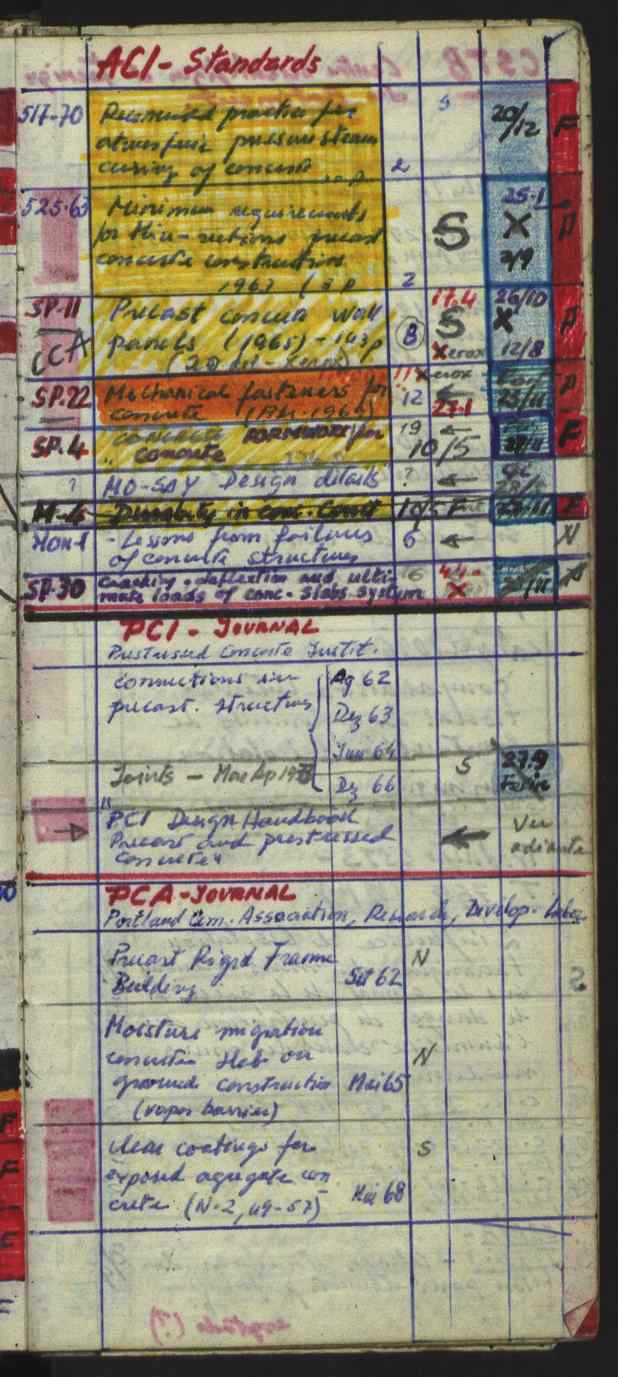 ACI - Standards
517-70
Recommended practice for
atmosferic pressure steam
curing of concrete
2
S
20/12
F
525-63
Minimum requirements
for thin-sections precast
concrete construction
1963
2
S
25-1
X
2/9
SP-11
CCA
Precast concrete wall
panels (1965) - 143p
8
17.4
S
Xerox
26/10
X
12/8
SP.22
Mechanical fasteners for
concrete
12
Xerox
27.1
SP.4
concrete FORMWORK for
" concrete
19 ←
10/5
F
?
MO-SAY Design details
?
←
M-6
Durability in conc. Const
F
MON-1
- Lessons from failures
of concrete structures
6
←
N
SP-30
Cracking, deflection and ulti-
mate loads of conc. slabs system
16
4.4
X
PCI - JOURNAL
Prestressed Concrete Instit.
Connections in
precast. structures
Ag 62
Dez 63
Jun 64
Dez 66
Joints - Mar Ap 197
S
27.9
PCI Design Handbook
Precast and prestressed
Concrete"
←
Ver
adiante
PCA - JOURNAL
Portland Cem. Association, Research, Develop. Labor.
Precast Rigid Frame
Building
Set 62
N
Moisture migration
concrete slab on
ground construction
(vapor barrier)
Mai 65
N
Clear coatings for
exposed agregate con
crete (N-2, 49-57)
Mai 68
S